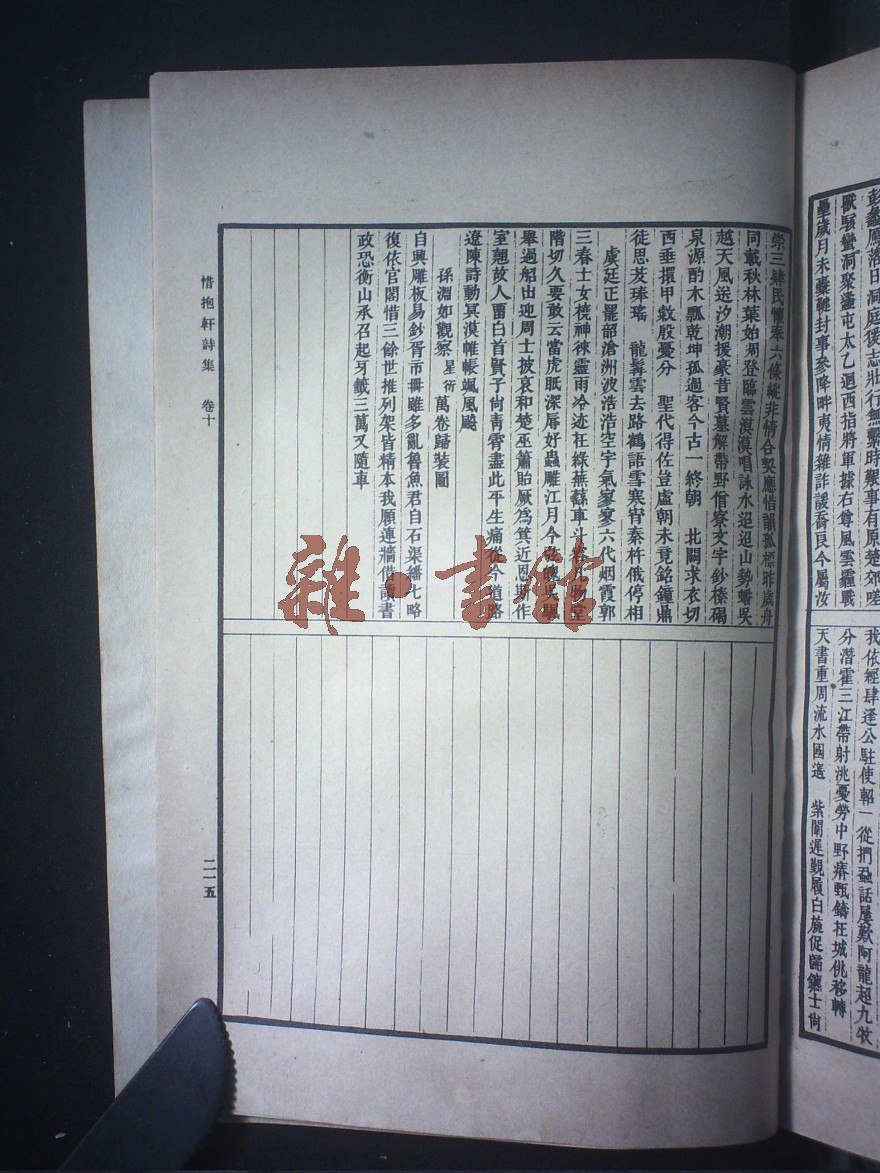 彭蠡鳳落日洞庭後志壯行無繫時艱事有原楚郊嗟
獸駭蠻洞聚 屯太乙迴西指將軍據右尊風雲 戰
壘歲月未 鞬封事參降畔夷情雜詐諼 艮今屬汝
我依經肆逢公駐使軺一從捫蝨話屢歎阿龍超九牧
分潛霍三江帶射洮憂勞中野瘠甄鑄在城佻移轉
天書重周流水國遙 紫閣遲覲履白旄促歸鑣士尙
崇三肄民懷奉六條縱非情合契應惜韻孤標昨歲舟
同載秋林葉始凋登臨雲漠漠唱詠水迢迢山勢蟠吳
越天風送汐潮援豪昔賢墓解帶野僧寮文字鈔榛碣
泉源酌木瓢乾坤孤過客今古一終朝 北闕求衣切
西垂擐甲敹殷憂分 聖代得佐登虛朝未竟銘鐘鼎
徒思茇琫瑤 龍髯雲去路鶴語雪寒宵秦杵俄停相
虞廷正罷韶滄洲波浩浩空宇氣寥寥六代烟霞郭
三春士女橈神徠靈雨冷迹在綠蕪蘇車斗 物堂
階切久要敢云當虎眂深辱好蟲雕江月今
舉過船出迎周士披哀和楚巫簫貽厥為箕近恩斯作
室翹故人畱白首賢子尙靑霄盡此平生痛從今道路
遼陳詩動冥漠帷帳颯風飈
孫淵如觀察星衍萬卷歸裝圖
自興雕板易鈔胥市冊雖多亂魯魚君自石渠繙七略
復依官閣惜三餘世推列架皆精本我願連牆借讀書
政恐衡山承召起牙籤三萬又隨車
惜抱軒詩集 卷十
二一五
雜·書館